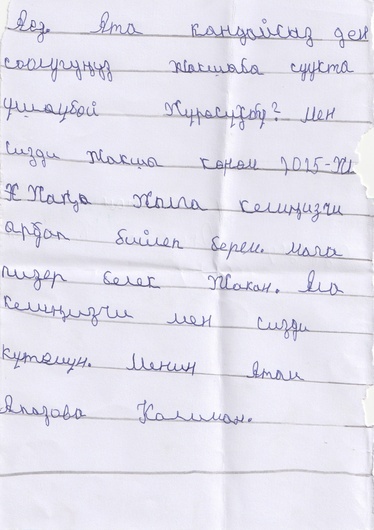 Аяз. Ата кандайсыз ден
соолугуңуз жакшыба суукта
үшыубой жүрөсүзбү? Мен
сизди жакша көрөм 2015-жы
Жаңа жылга келиңизчи
арбап бийлеп берем. мага
силер белек жакан. Ата
келиңизчи мен сизди
күтөмүн. Менин Атам
Апазова Калима.